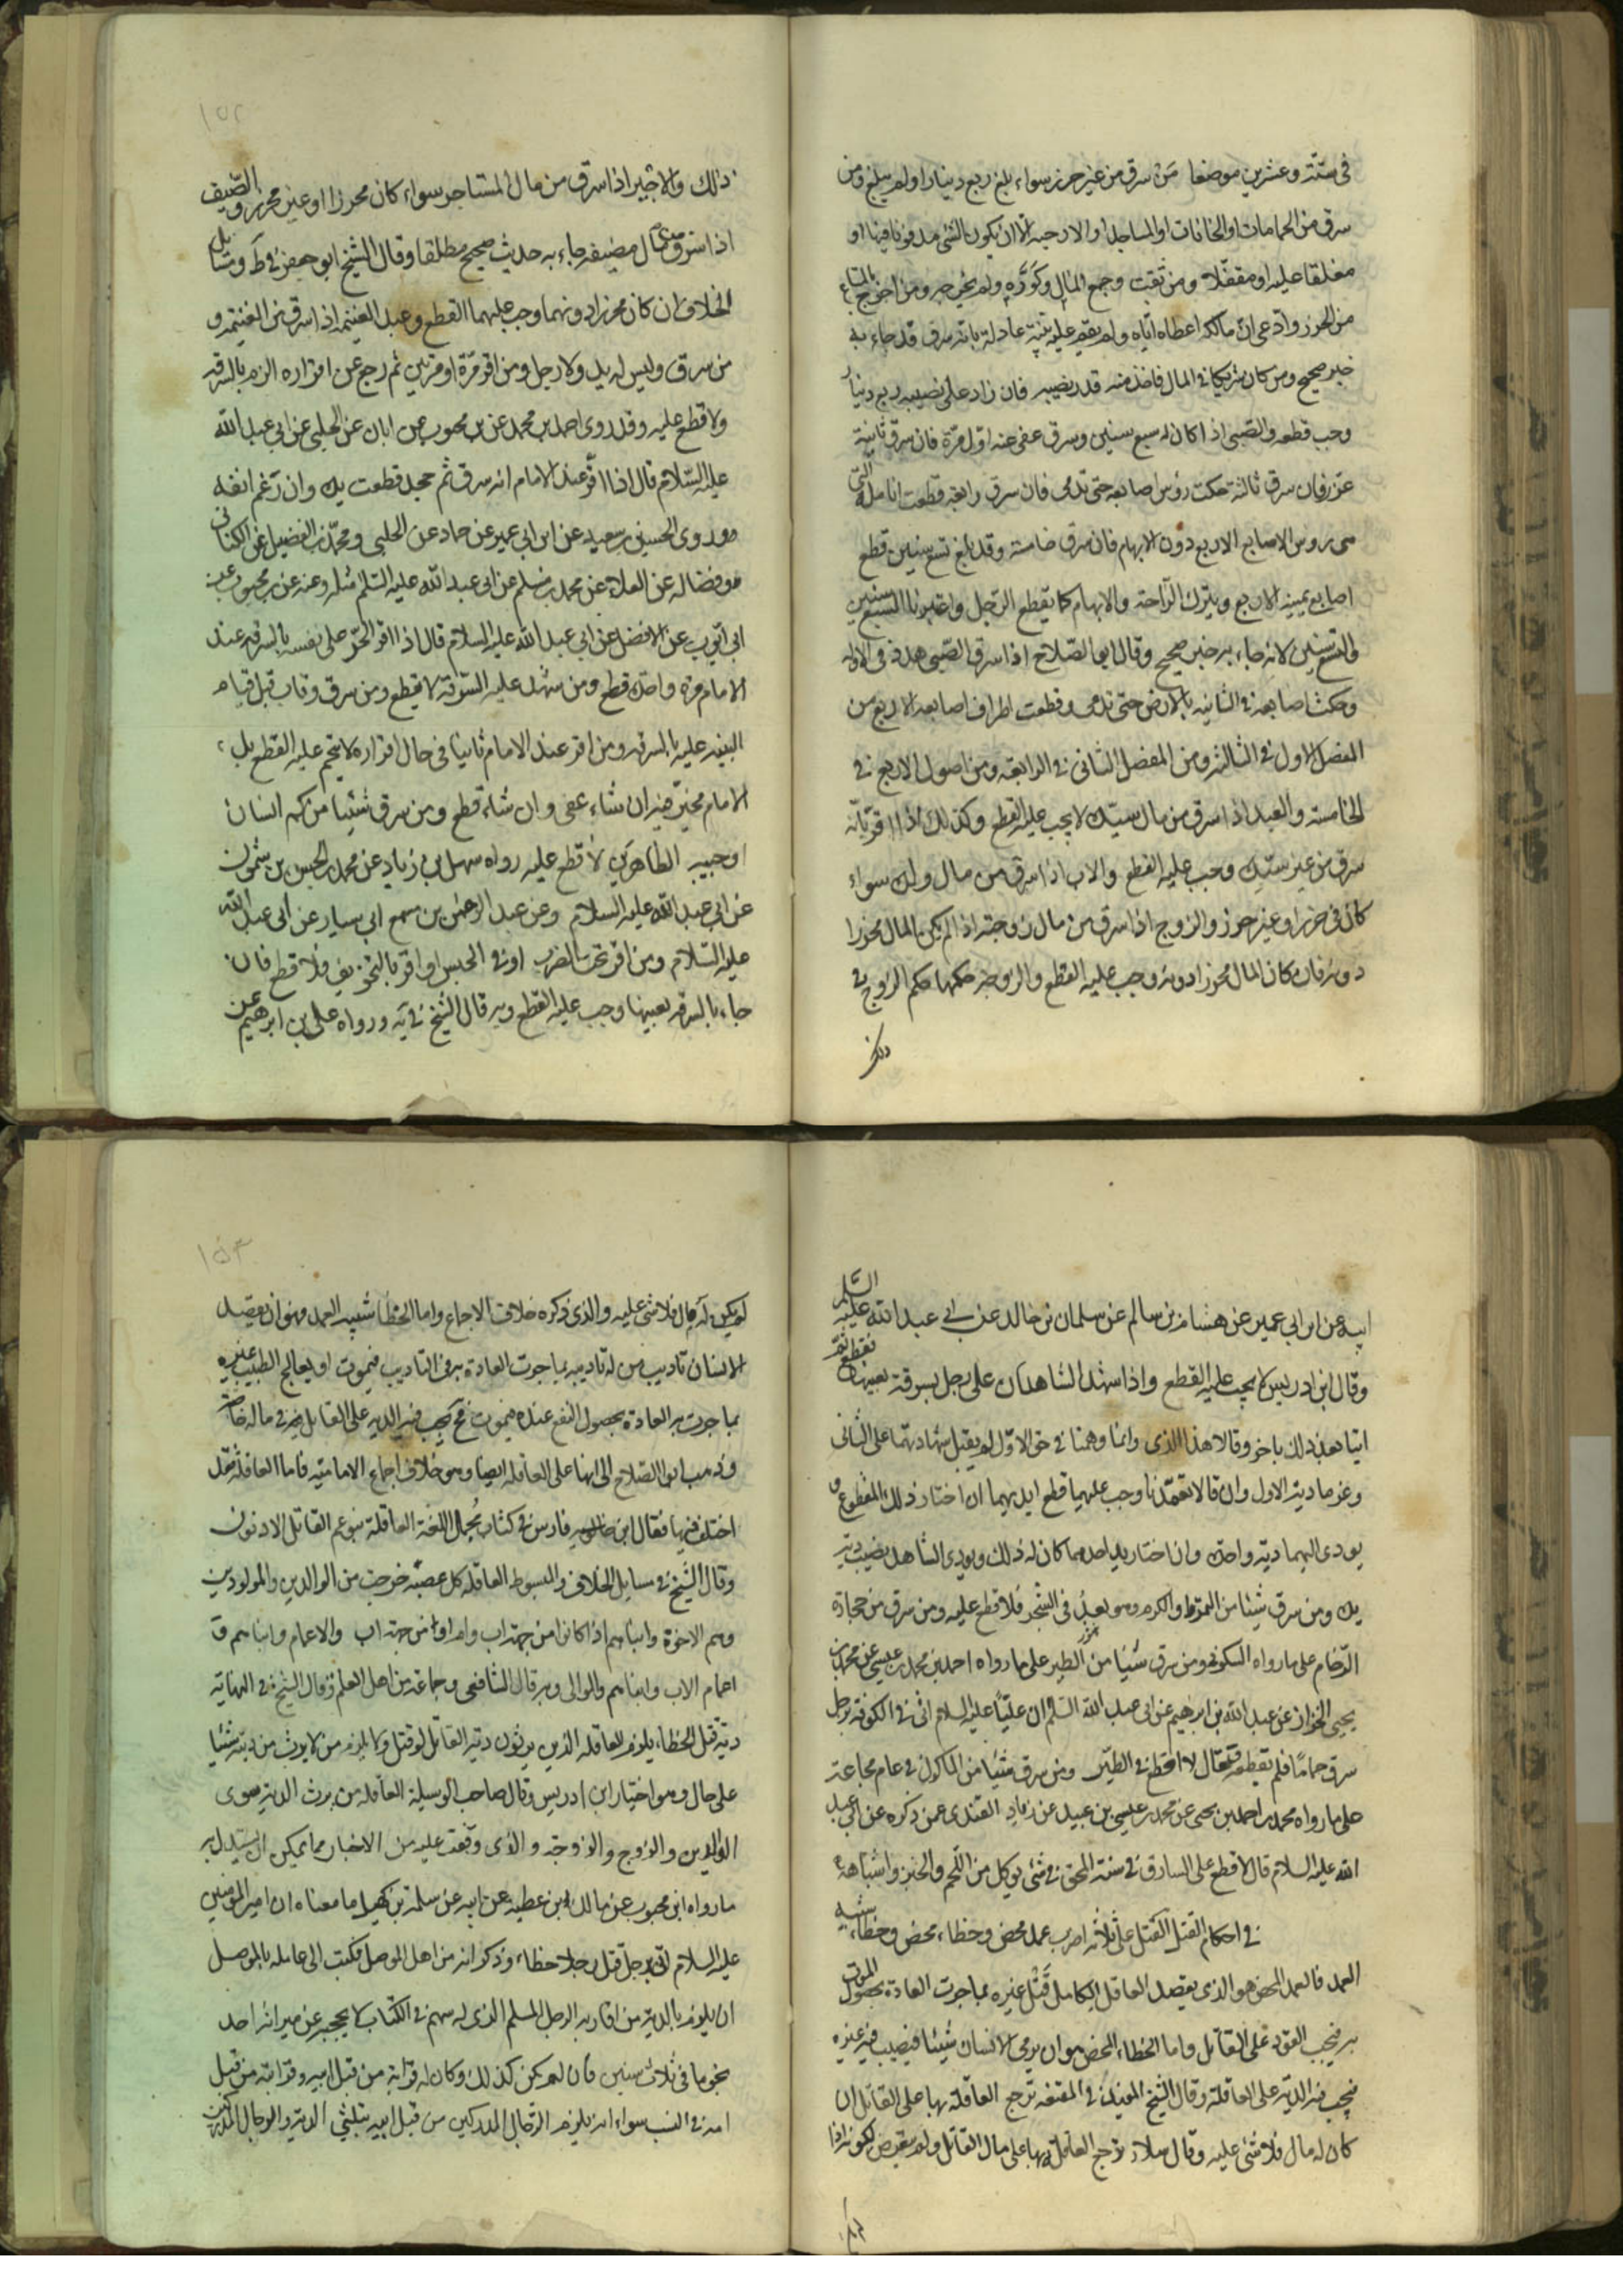 في ستة وعشرين موضعا من سرق من غير حرز سواء بلغ ربع دينار اولم يبلغ ومن
سرق من الحمامات او الخانات او المساجد او الارحبة الا ان يكون الشئ مدفونا فيها او
مغلقا عليه او مقفلا ومن ثقب وجمع المال وكوره ولم يخرجه ومن اخرج المتاع
من الحرز وادعى ان مالكه اعطاه اياه ولم يقم عليه بينة عادلة بانه سرق قد جاء به
خبر صحيح ومن كان شريكا في المال فاخذ منه قدر نصيبه فان زاد على نصيبه ربع دينار
وجب قطعه والصبى اذا كان له سبع سنين وسرق عفى عنه اول مرة فان سرق ثانية
عزر فان سرق ثالثة حكت رؤس اصابعه حتى تدمى فان سرق رابعة قطعت انامله التي
هى روس الاصابع الاربع دون الابهام فان سرق خامسة وقد بلغ تسع سنين قطع
اصابع يمينه الاربع ويترك الراحة والابهام كما يقطع الرجل واعتبرنا السبع سنين
والتسع سنين لانه جاء به خبر صحيح وقال ابو الصلاح اذا سرق الصبى هدد في الاولة
وحكت اصابعه في الثانيه بالارض حتى تدمى وقطعت اطراف اصابعه الاربع من
المفصل الاول في الثالثة ومن المفصل الثانى في الرابعة ومن اصول الاربع في
الخامسة والعبد اذا سرق من مال سيده لا يجب عليه القطع وكذلك اذا اقر بانه
سرق من غير سيده وجب عليه القطع والاب اذا سرق من مال ولده سواء
كان في حرز او غير حرز والزوج اذا سرق من مال زوجته اذا لم يكن المال محرزا
دونه فان كان المال محرزا دونه وجب عليه القطع والزوجة حكمها حكم الزوج في
ذلك
١٥٢
ذلك والاجير اذا سرق من مال المستاجر سواء كان محرزا او غير محرز والضيف
اذا سرق من مال مضيفه جاء به حديث صحيح مطلقا وقال الشيخ ابو جعفر في ط ومسائل
الخلاف ان كان محرزا دونهما وجب عليهما القطع وعبد الغنيمة اذا سرق من الغنيمة و
من سرق وليس له يد ولا رجل ومن اقر مرة او مرتين ثم رجع عن اقراره الزم بالسرقة
ولا قطع عليه وقد روى احمد بن محمد عن بن محبوب عن ابان عن الحلبى عن ابي عبد الله
عليه السلام قال اذا اقر عند الامام انه سرق ثم جحد قطعت يده وان رغم انفه
وروى الحسين بن سعيد عن ابن ابى عمير عن حماد عن الحلبى ومحمد بن الفضيل عن الكنانى
وفضاله عن العلاء عن محمد بن مسلم عن ابى عبد الله عليه السلام مثله وعنه عن بن محبوب عن
ابى ايوب عن الفضل عن ابي عبد الله عليه السلام قال اذا اقر الحر على نفسه بالسرقه عند
الامام مرة واحدة قطع ومن شهد عليه السرقة لا يقطع ومن سرق وتاب قبل قيام
البينه عليه بالسرقه ومن اقر عند الامام تائبا في حال اقراره لا يتحتم عليه القطع بل
الامام مخير فيه ان شاء عفى وان شاء قطع ومن سرق شيئا من كم انسان
او جيبه الظاهرين لا قطع عليه رواه سهل بن زياد عن محمد بن الحسن بن شمون
عن ابى عبد الله عليه السلام وعن عبد الرحمن بن مسمع ابى سيار عن ابى عبد الله
عليه السلام ومن اقر تحت الضرب او في الحبس او اقر بالتخويف فلا قطع فان
جاء بالسرقه بعينها وجب عليه القطع وبه قال الشيخ في يه ورواه على بن ابرهيم عن
ابيه عن ابن ابى عمير عن هشام بن سالم عن سلمان بن خالد عن ابي عبد الله عليه السلم
وقال ابن ادريس لا يجب عليه القطع واذا شهد الشاهدان على رجل بسرقة بعينها فقطع ثم
اتيا بعد ذلك باخر وقالا هذا الذى وانما وهمنا في حق الاول لم يقبل شهادتهما على الثانى
وغرما دية الاول وان قالا تعمدنا وجب عليهما قطع ايديهما ان اختار ذلك المقطوع و
يودى اليهما دية واحدة وان اختار يد احدهما كان له ذلك ويودى الشاهد نصيب دية
يده ومن سرق شيئا من الثمرة والكرم وهو بعد في الشجر فلا قطع عليه ومن سرق من حجارة
الرخام على ما رواه السكونى ومن سرق شيئا من الطير على ما رواه احمد بن محمد بن عيسى عن محمد بن
يحيى الخزاز عن عبد الله بن ابرهيم عن ابى عبد الله السلم ان عليا عليه السلام اتى في الكوفة برجل
سرق حماما فلم يقطعه فقال لا اقطع في الطير ومن سرق شيئا من الماكول في عام مجاعة
على ما رواه محمد بن احمد بن يحيى عن محمد بن عيسى بن عبيد عن زياد القندى عمن ذكره عن ابى عبد
الله عليه السلام قال لا قطع على السارق في سنة المحق في شئ يوكل من اللحم والخبز واشباهه
في احكام القتل القتل على ثلاثة اضرب عمد محض وخطاء محض وخطاء شبيه
العمد فالعمد المحض هو الذى يقصد العاقل الكامل قتل غيره بما جرت العادة بحصول الموت
به فيجب القود على القاتل واما الخطاء المحض هو ان يرمى الانسان شيئا فيصيب فيه غيره
فيجب فيه الدية على العاقلة وقال الشيخ المفيد في المقنعه ترجع العاقلة بها على القاتل ان
كان له مال فلا شئ عليه وقال سلار ترجع العاقلة بها على مال القاتل ولم يتعرض لكونه اذا
١٥٣
لم يكن له مال فلا شئ عليه والذى ذكره خلاف الاجماع واما الخطا شبيه العمد وهو ان يقصد
الانسان تاديب من له تاديبه بما جرت العادة به في التاديب فيموت او يعالج الطبيب غيره
بما جرت به العادة بحصول النفع عنده فيموت فح يجب فيه الدية على القاتل في ماله خاصة
وذهب ابو الصلاح الى انها على العاقلة ايضا وهو خلاف اجماع الاماميه فاما العاقلة فقد
اختلف فيها فقال ابن فارس في كتاب مجمل اللغة العاقلة بنو عم القاتل الادنون
وقال الشيخ في مسايل الخلاف والمبسوط العاقلة كل عصبة خرجت من الوالدين والمولودين
وهم الاخوة وابناهم اذا كانوا من جهة اب وام او من جهة اب والاعمام وابناهم و
اعمام الاب وابناهم والموالى وبه قال الشافعى وجماعة من اهل العلم وقال الشيخ في النهاية
دية قتل الخطاء يلزم العاقلة الذين يرثون دية القاتل لو قتل ولا يلزم من لا يورث من ديته شيئا
على حال وهو اختيار ابن ادريس وقال صاحب الوسيلة العاقلة من يرث الدية سوى
الوالدين والزوج والزوجة والذى وقعت عليه من الاخبار مما يمكن ان يستدل به
ما رواه ابن محبوب عن مالك ابن عطيه عن ابيه عن سلمة بن كهيل ما معناه ان امير المومنين
عليه السلام اتى برجل قتل رجلا خطاء وذكر انه من اهل الموصل فكتب الى عامله بالموصل
ان يلزم بالدية من اقاربه الرجل المسلم الذى له سهم في الكتاب لا يحجبه عن ميراثه احد
نجوما في ثلاث سنين فان لم يكن كذلك وكان له قرابة من قبل ابيه وقرابة من قبل
امه في النسب سواء انه يلزم الرجال المدركين من قبل ابيه بثلثى الدية والرجال المدركين